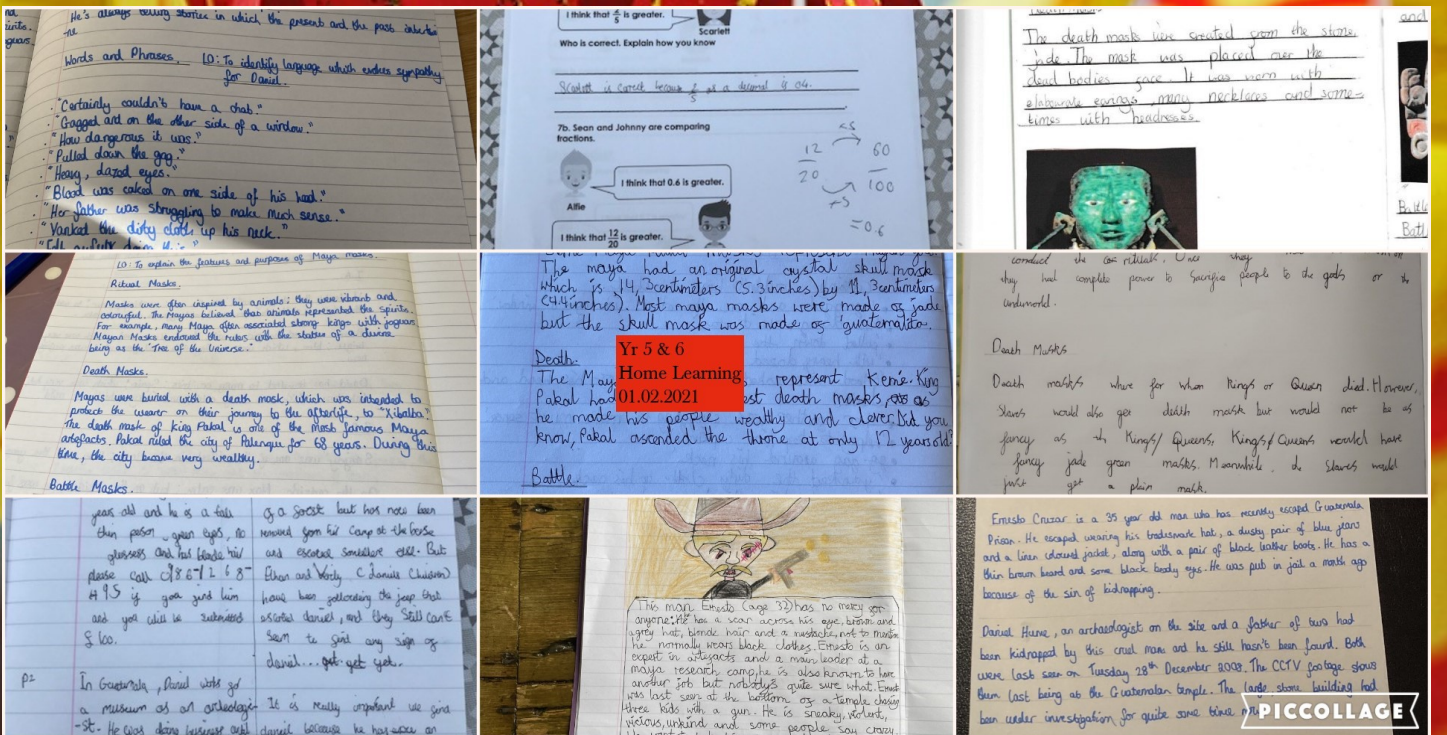 He's always telling stories in which the present and the past intertwi
-ne
Words and Phrases. LO: To identify language which evokes sympathy
for Daniel.
"Certainly couldn't have a chat."
"Gagged and on the other side of a window."
"How dangerous it was."
"Pulled down the gag."
"Heavy, dazed eyes."
"Blood was caked on one side of his head."
"Her father was struggling to make much sense."
"Yanked the dirty cloth up his neck."
I think that 2/5 is greater.
Scarlett
Who is correct. Explain how you know
Scarlett is correct because 2/5 as a decimal is 0.4.
7b. Sean and Johnny are comparing
fractions.
I think that 0.6 is greater.
Alfie
I think that 12/20 is greater.
×5
12/20
60/100
×5
=0.6
Death Masks
The death masks were created from the stone,
jade. The mask was placed over the
dead bodies face. It was worn with
elabourate earings, many necklaces and some-
times with headresses.
and
Battle
Batt
LO: To explain the features and purposes of Maya masks.
Ritual Masks.
Masks were often inspired by animals; they were vibrant and
colourful. The Mayas believed that animals represented the spirits.
For example, many Maya often associated strong kings with jaguars.
Mayan Masks endowed the rulers with the status of a divine
being as the 'Tree of the Universe.'
Death Masks.
Mayas were buried with a death mask, which was intended to
protect the wearer on their journey to the afterlife, to "Xibalba."
The death mask of King Pakal is one of the most famous Maya
artefacts. Pakal ruled the city of Palenque for 68 years. During this
time, the city became very wealthy.
Battle Masks.
The maya had an original crystal skull mask
which is 14,3centimeters (5.3inches) by 11,3centimeters
(4.4inches). Most maya masks were made of jade
but the skull mask was made of guatemalita.
Death.
The May represent Kemé. King
Pakal had est death masks, as
he made his people wealthy and clever. Did you
know, Pakal ascended the throne at only 12 years old?
Battle.
Yr 5 & 6
Home Learning
01.02.2021
conduct the rituals. Once they
they had complete power to Sacrifice people to the gods or the
underworld.
Death Masks
Death masks where for when Kings or Queen died. However,
Slaves would also get death mask but would not be as
fancy as the Kings/Queens, Kings/Queens would have
fancy jade green masks. Meanwhile, the Slaves would
just get a plain mask.
years old and he is a tall
thin person, green eyes, no
glassess and has blonde hair
please call
if you find him
and you will be
£100.
P2
In Guatemala, Daniel works for
a museum as an
-st. He was doing business and
of a forest but has now been
removed from his Camp at the forest
and escorted somewhere else. But
Ethan and (Daniels Children)
have been following the jeep that
escorted daniel, and they Still cant
seem to find any sign of
daniel... get yet.
It is really important we find
daniel because he has
This man Ernesto (age 32) has no mercy for
anyone. He has a scar across his eye, brown and
a grey hat, blonde hair and a mustache, not to mention
he normally wears black clothes. Ernesto is an
expert in artefacts and a main leader at a
maya research camp, he is also known to have
another job but nobodys quite sure what. Ernest
was last seen at the bottom of a temple chasing
three kids with a gun. He is sneaky, violent,
vicious, unkind and some people say crazy.
Ernesto Cruzar is a 35 year old man who has recently escaped Guatemala
Prison. He escaped wearing his trademark hat, a dusty pair of blue jeans
and a linen coloured jacket, along with a pair of black leather boots. He has a
thin brown beard and some black beady eyes. He was put in jail a month ago
because of the sin of kidnapping.
Daniel Hume, an archaeologist on the site and a father of two had
been kidnapped by this cruel man and he still hasn't been found. Both
were last seen on Tuesday 28th December 2008. The CCTV footage shows
them last being at the Guatemalan temple. The large, stone building had
been under investigation for quite some time
PICCOLLAGE